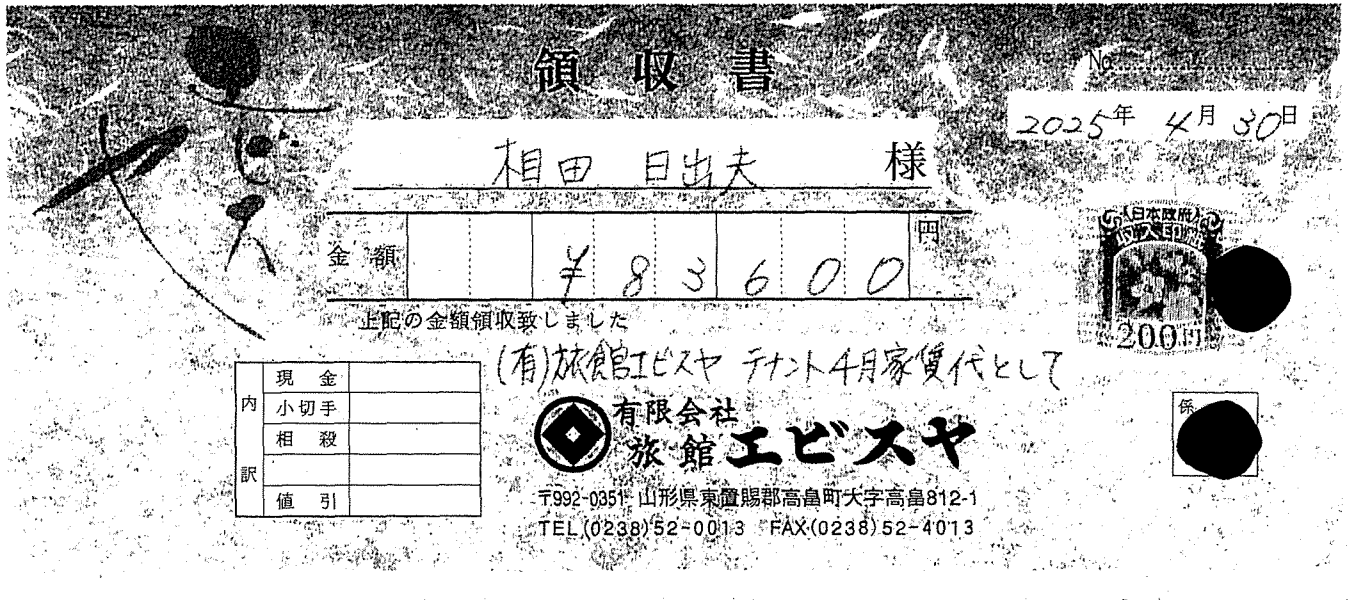 領収書
No.
2025年 4月 30日
相田 日出夫 様
金額 ¥83600 円
上記の金額領収致しました
(有)旅館エビスヤ テナント4月家賃代として
内訳
現金
小切手
相殺
値引
日本政府
収入印紙
200円
係
有限会社
旅館エビスヤ
〒992-0351 山形県東置賜郡高畠町大字高畠812-1
TEL(0238)52-0013 FAX(0238)52-4013